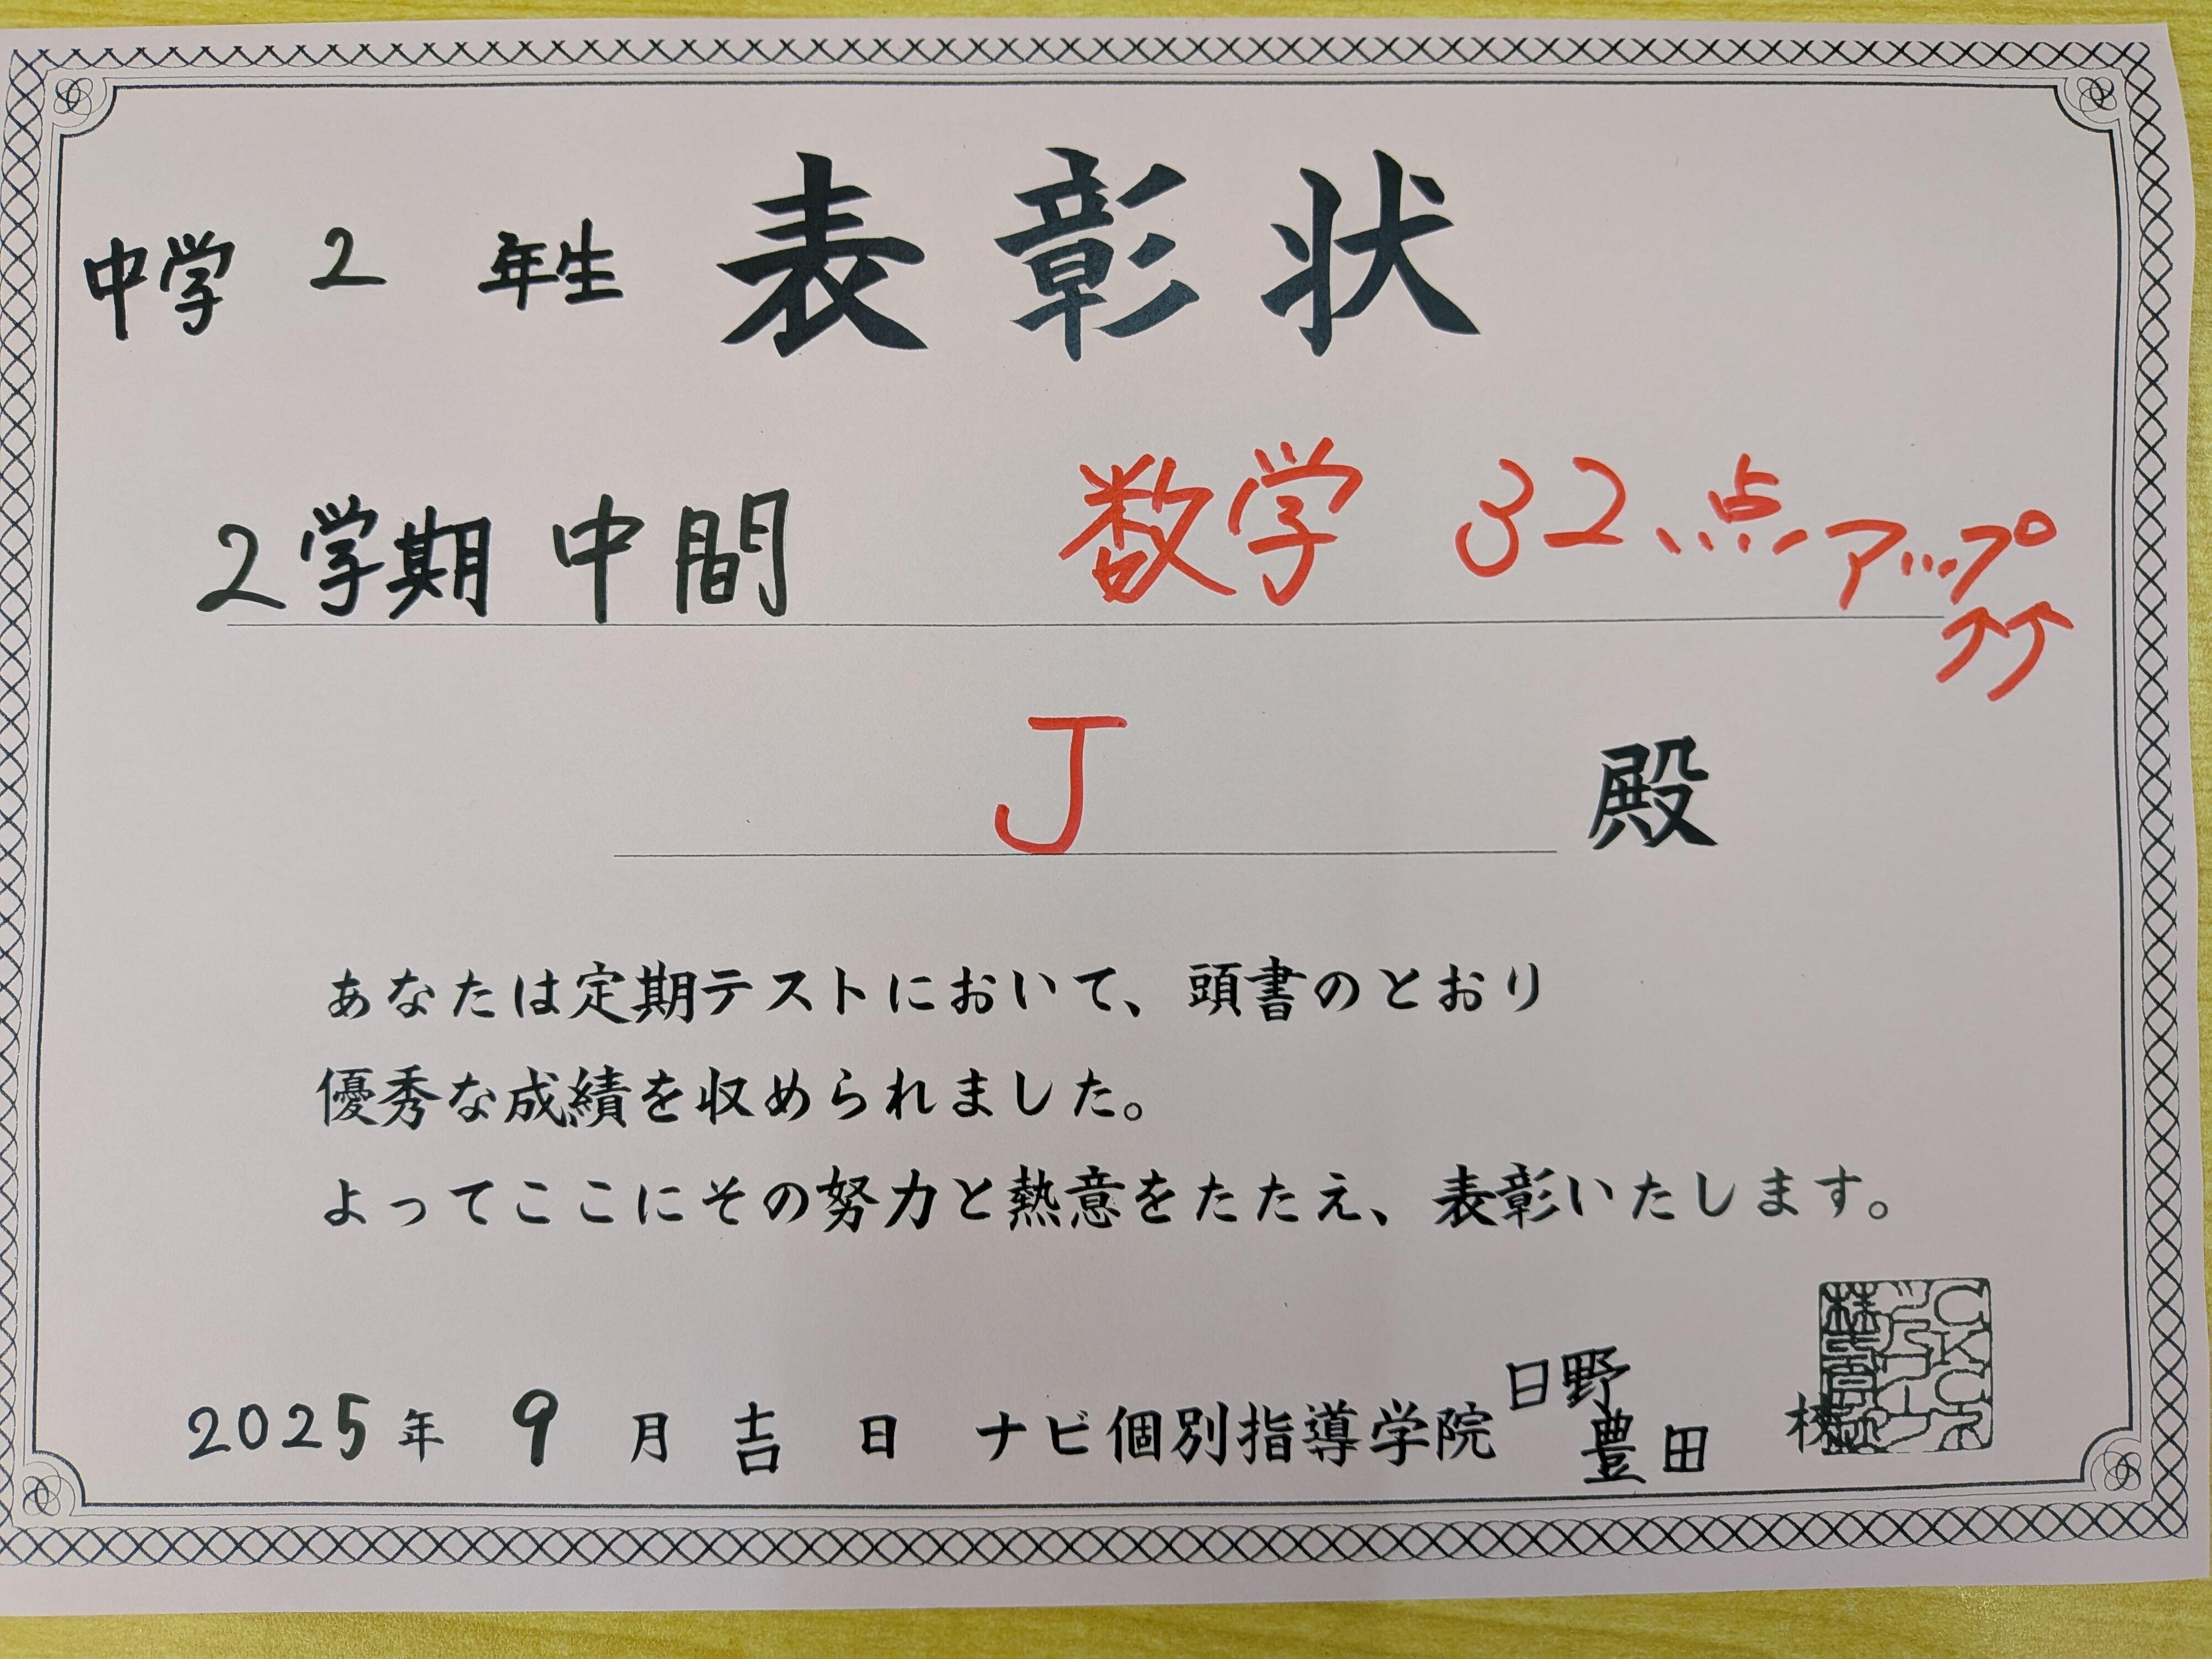 中学 2 年生 表彰状
2学期 中間 数学 32点アップ↑↑
J 殿
あなたは定期テストにおいて、頭書のとおり
優秀な成績を収められました。
よってここにその努力と熱意をたたえ、表彰いたします。
2025年 9 月 吉 日 ナビ個別指導学院 日野豊田 校